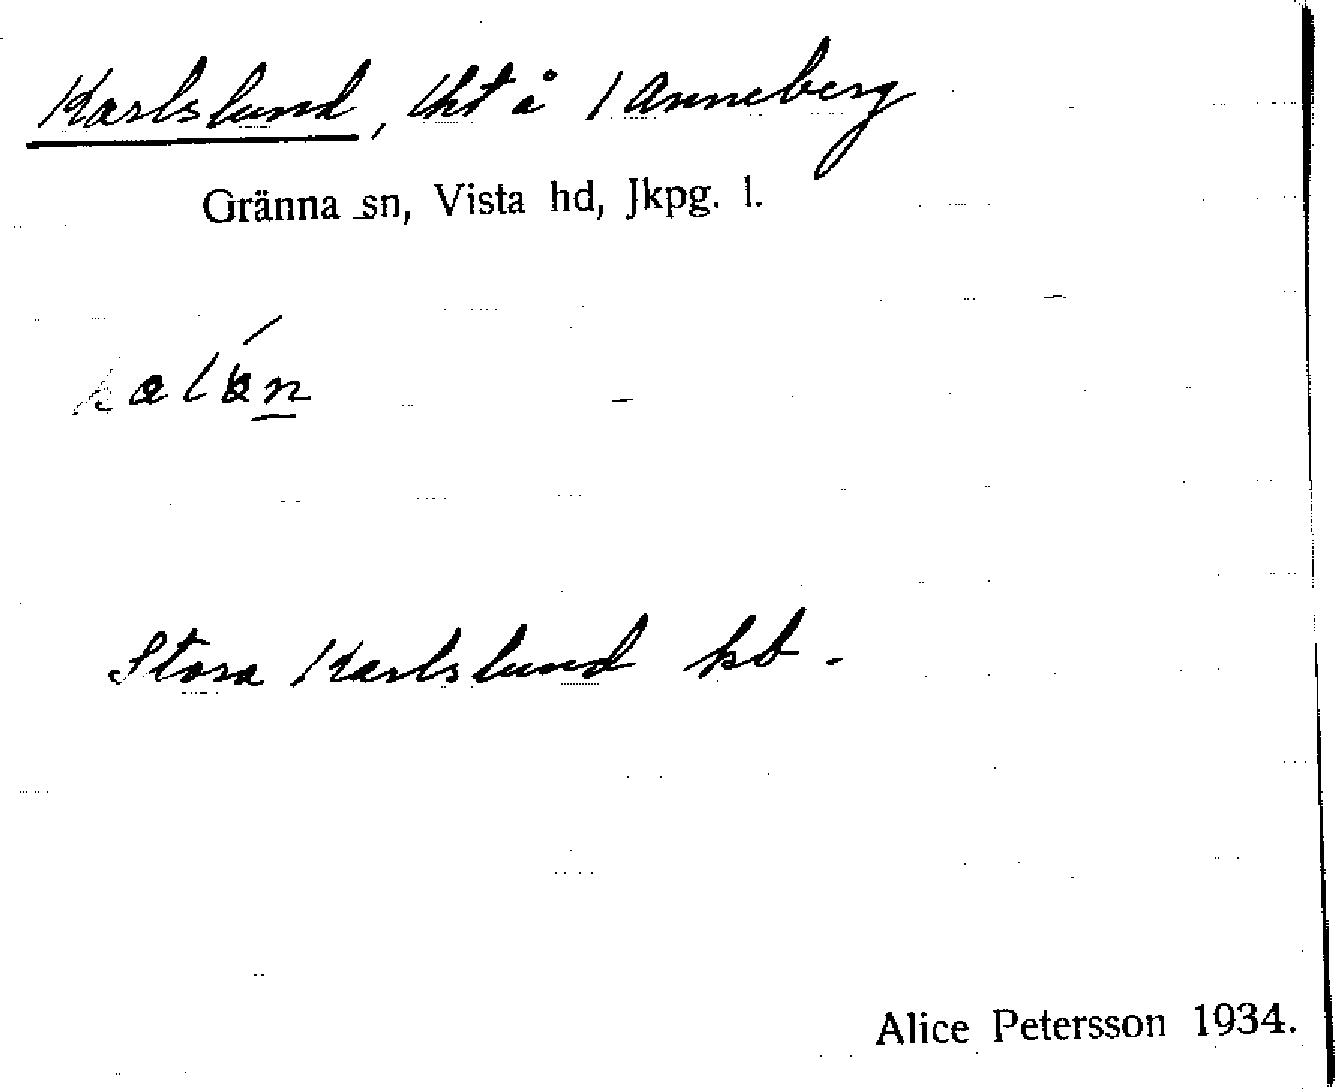 Karlslund, lht å 1 Anneberg
Gränna sn, Vista hd, Jkpg. l.
Stora Karlslund kb.
Alice Petersson 1934.